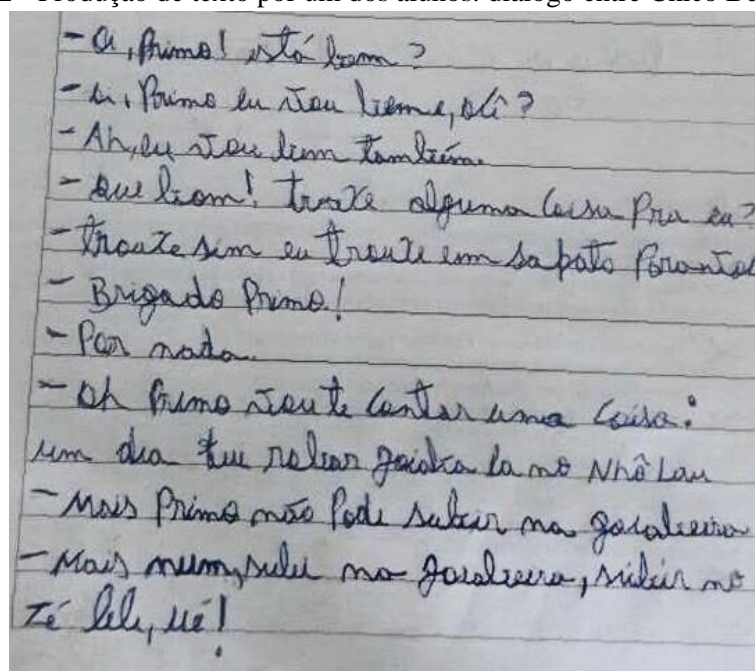 - Produção de texto por um dos alunos: diálogo entre Chico Be
- Oi, Primo! está bom?
- Oi, Primo eu vou bem e, ocê?
- Ah, eu vou bem também.
- Que bom! troxe alguma coisa Pra eu?
- trouxe sim eu trouxe um sapato Por
- Brigado Primo!
- Por nada.
- Oh Primo vou te contar uma coisa:
um dia fui robar goiaba la no Nhô Lau
- Mais Primo não Pode subir na goiabeira
- Mais num, subi na goiabeira, subir no
Zé lele, ué!